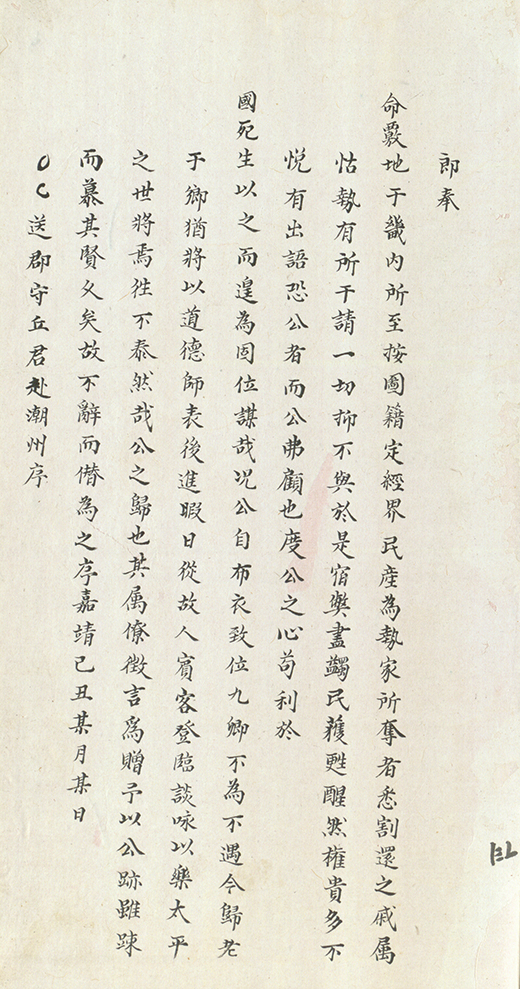 郎奉
命覈地于畿内所至按圖籍定經界民產為執家所奪者悉割還之戚属
怙執有所干請一切抑不與於是宿獘盡蠲民獲甦醒然權貴多不
悦有出語恐公者而公弗顧也度公之心苟利於
國死生以之而遑為固位謀哉况公自布衣致位九卿不為不遇今歸老
于鄉猶將以道德師表後進暇日從故人賓客登臨談咏以樂太平
之世將焉徃不泰然哉公之歸也其属僚徴言爲贈予以公跡雖踈
而慕其賢乆矣故不辭而僭為之序嘉靖己丑某月某日
送郡守丘君赴潮州序